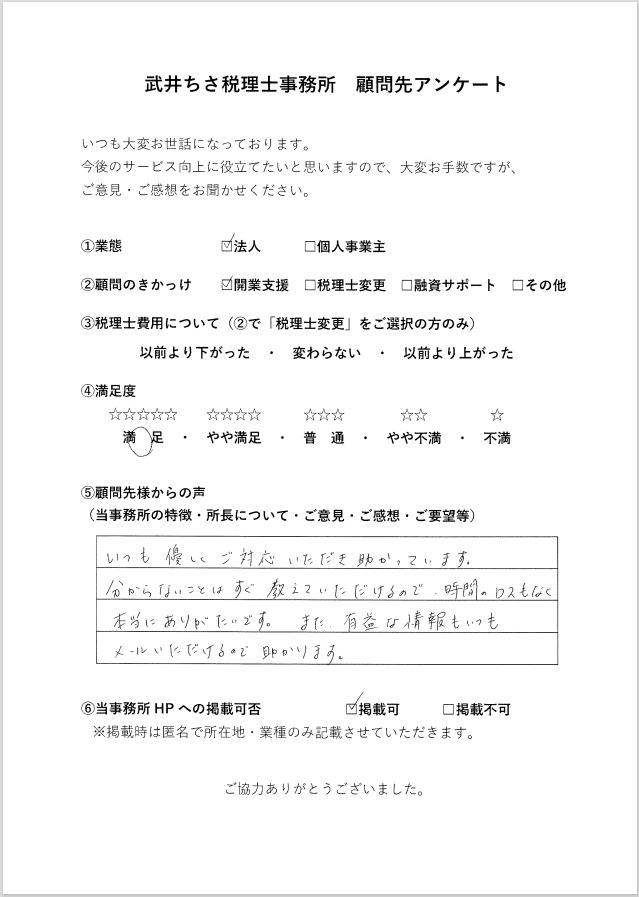 武井ちさ税理士事務所　顧問先アンケート
いつも大変お世話になっております。
今後のサービス向上に役立てたいと思いますので、大変お手数ですが、
ご意見・ご感想をお聞かせください。
①業態　☑法人　□個人事業主
②顧問のきかっけ　☑開業支援　□税理士変更　□融資サポート　□その他
③税理士費用について（②で「税理士変更」をご選択の方のみ）
以前より下がった　・　変わらない　・　以前より上がった
④満足度
☆☆☆☆☆　☆☆☆☆　☆☆☆　☆☆　☆
満　足　・　やや満足　・　普　通　・　やや不満　・　不満
⑤顧問先様からの声
（当事務所の特徴・所長について・ご意見・ご感想・ご要望等）
いつも 優しく ご対応 いただき 助かっています。
分からないことは すぐ 教えていただけるので、時間のロスもなく
本当にありがたいです。 また、有益な情報もいつも
メールいただけるので 助かります。
⑥当事務所 HP への掲載可否　☑掲載可　□掲載不可
※掲載時は匿名で所在地・業種のみ記載させていただきます。
ご協力ありがとうございました。